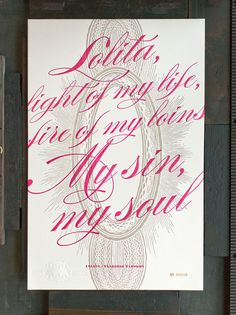 Lolita,
light of my life,
fire of my loins
My sin,
my soul
LOLITA / VLADIMIR NABOKOV